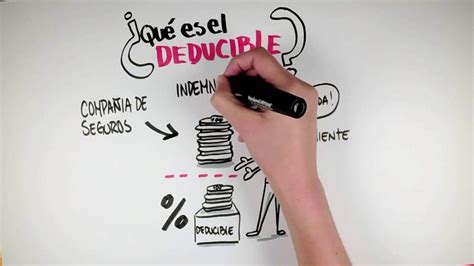 ¿Qué es el
DEDUCIBLE?
INDEMN
COMPAÑIA DE
SEGUROS
DA!
IENTE
%
DEDUCIBLE